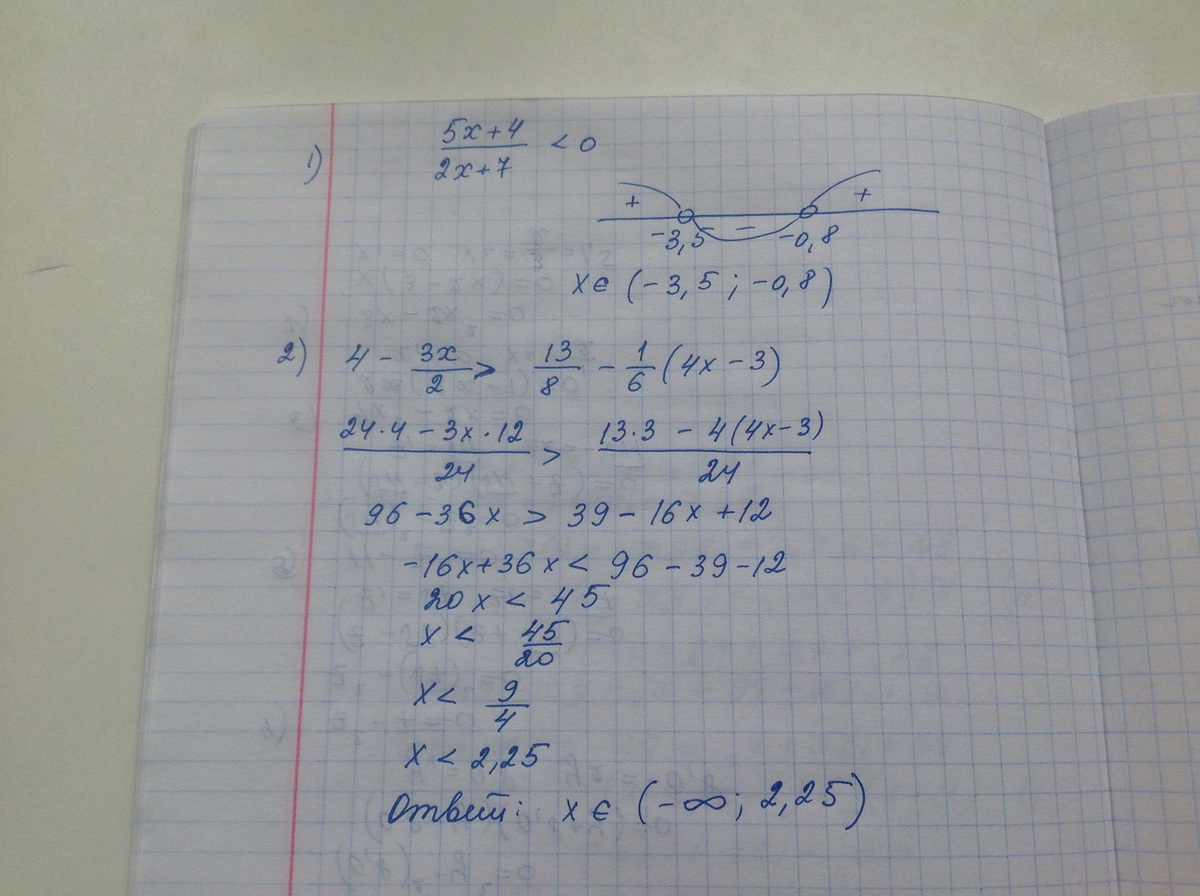 1) (5x+4)/(2x+7) < 0
+ − +
−3,5 −0,8
x ∈ (−3,5 ; −0,8)
2) 4 − 3x/2 > 13/8 − 1/6 (4x−3)
(24·4 − 3x·12)/24 > (13·3 − 4(4x−3))/24
96 − 36x > 39 − 16x + 12
−16x + 36x < 96 − 39 − 12
20x < 45
x < 45/20
x < 9/4
x < 2,25
Ответ: x ∈ (−∞; 2,25)